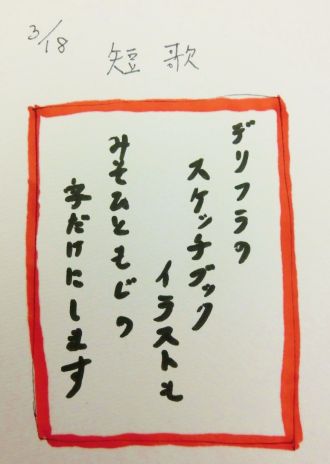 3/18
短歌
デリフラの
スケッチブック
イラストも
みそひともじの
字だけにします